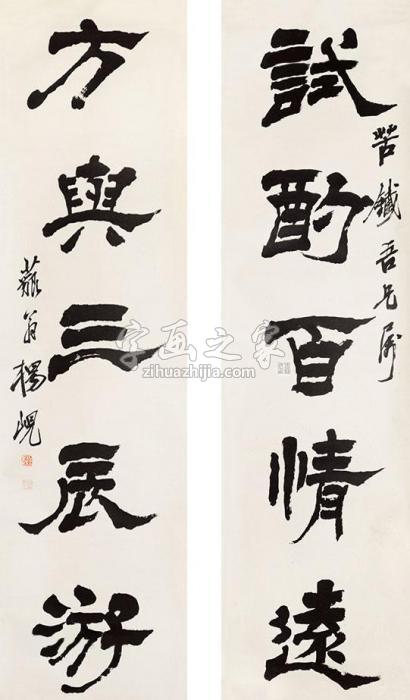 試酌百情遠
苦鐵吾兄屬
方與三辰游
藐翁楊峴
字画之家
zihuazhijia.com